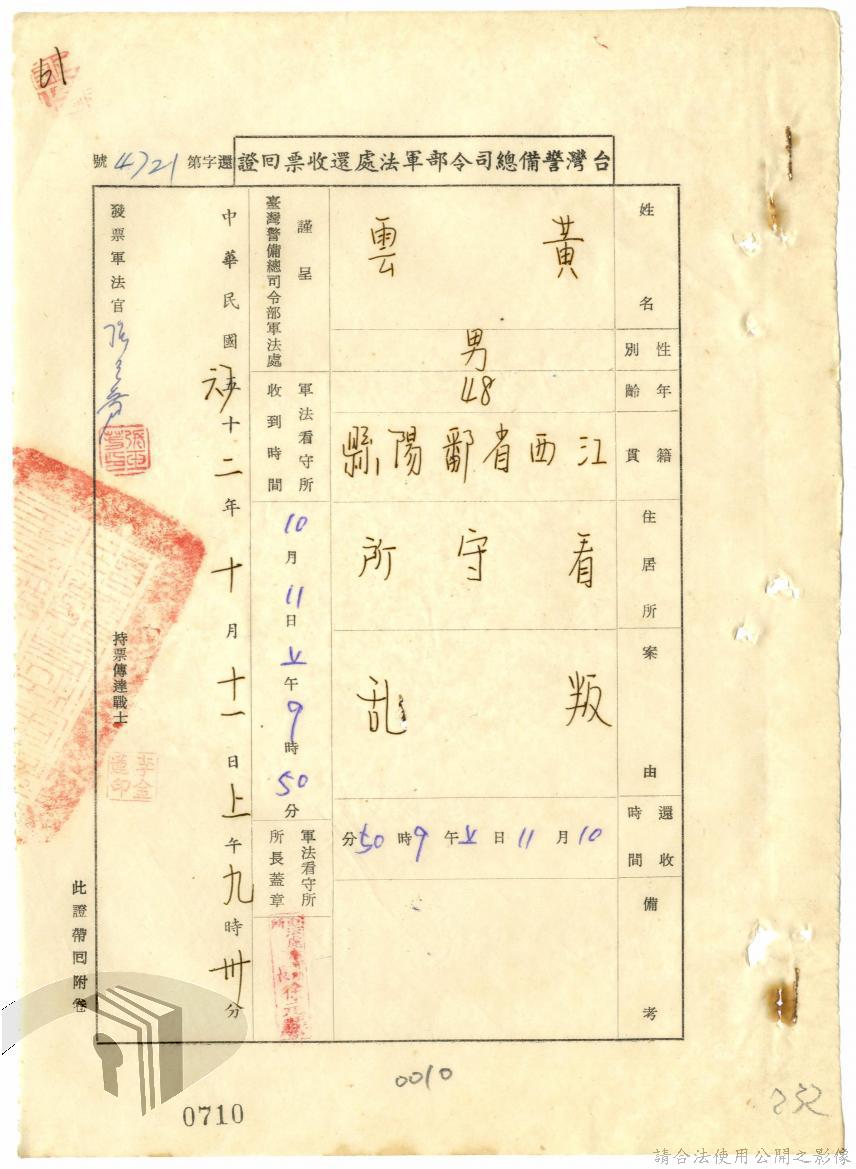 61
台灣警備總司令部軍法處還收票回證
還字第4721號
姓名
黃雲
性別
男
年齡
48
籍貫
江西省鄱陽縣
住居所
看守所
案由
叛乱
還收時間
10月11日上午9時50分
備考
謹呈
臺灣警備總司令部軍法處
軍法看守所收到時間
10月11日上午9時50分
軍法看守所所長蓋章
中華民國五十二年十月十一日上午九時卅分
發票軍法官
持票傳達戰士
李金
此證帶回附卷
0010
0710
232
請合法使用公開之影像